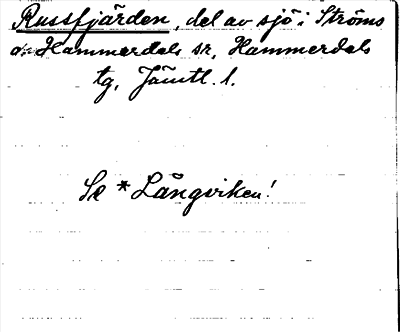 Russfjärden, del av sjö i Ströms
o. Hammerdals sr, Hammerdals
tg, Jämtl. l.
Se *Långviken!